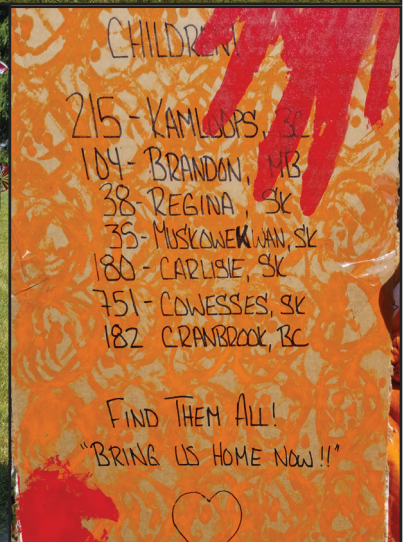 CHILDREN
215 - KAMLOOPS, BC
104 - BRANDON, MB
38 - REGINA, SK
35 - MUSKOWEKWAN, SK
180 - CARLISIE, SK
751 - COWESSES, SK
182 CRANBROOK, BC
FIND THEM ALL!
"BRING US HOME NOW!!"